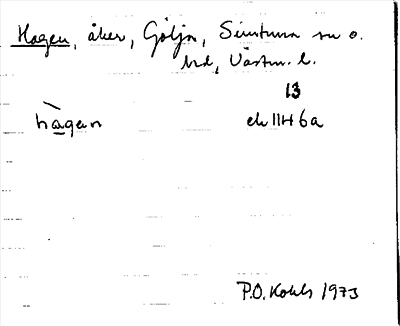 Hagen, åker, Göljn, Simtuna sn o.
hd, Västm. l.
13
hàgan
ek 11H 6a
P.O. Kohls 1973